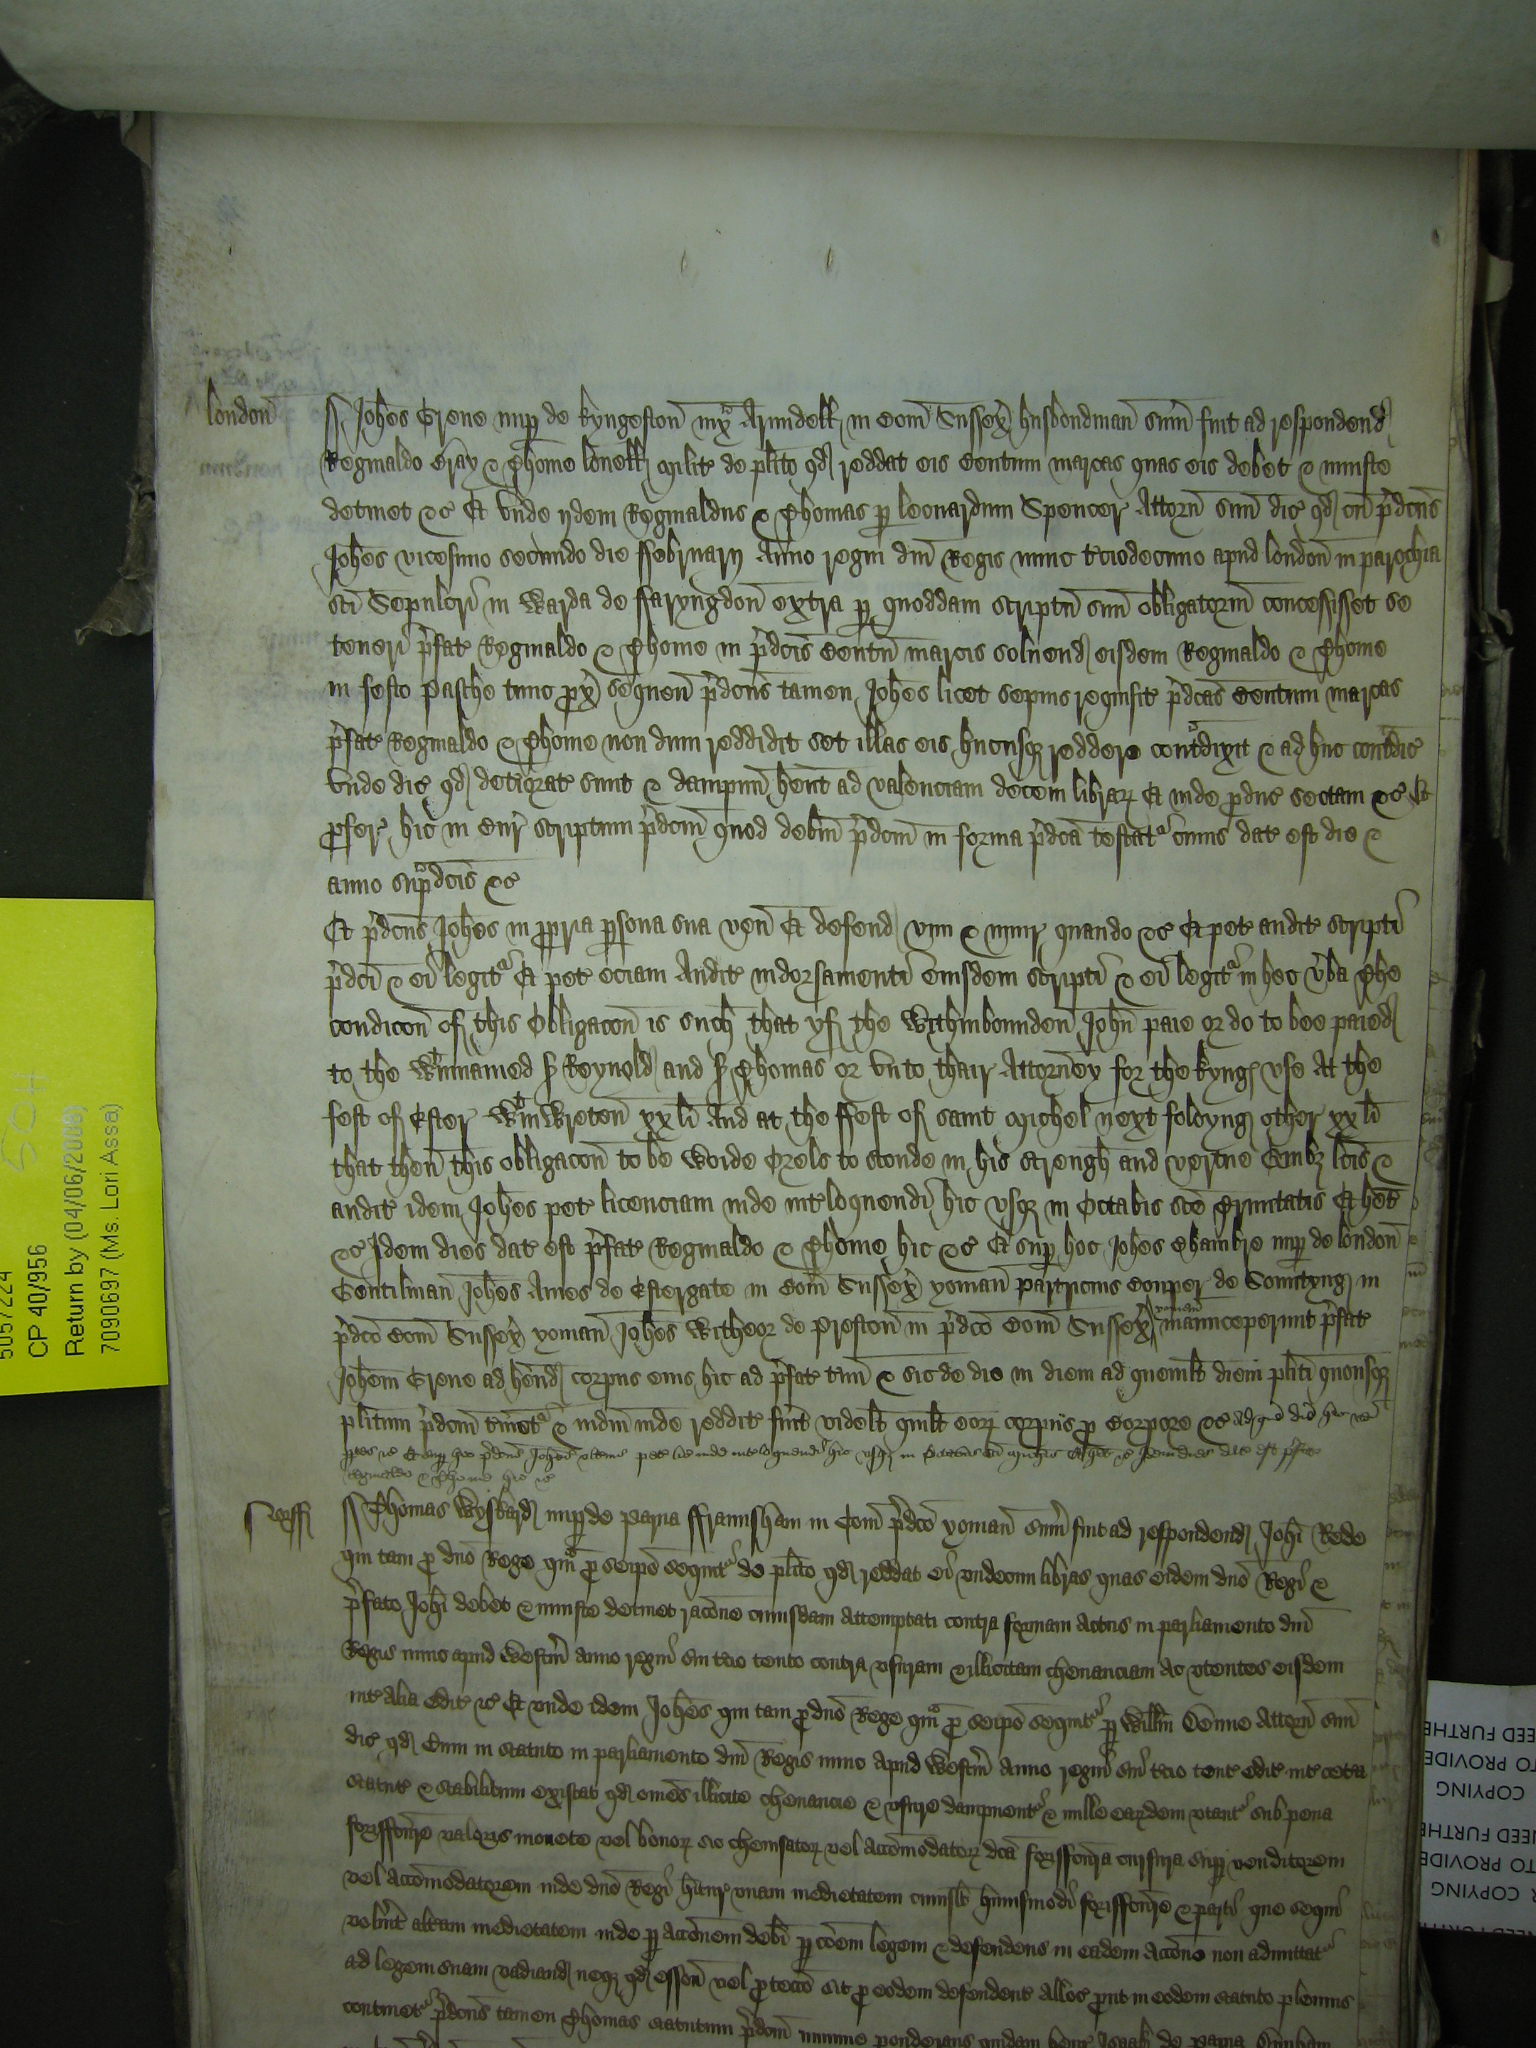 london
Johes Grene nup de kyngeston iux Arundell in Com Sussex husbondman sum fuit ad respondend
Reginaldo Bray & Thome lovell milit de plito qd reddat eis Centum marcas quas eis debet & iniuste
detinet &c Et unde ijdem Reginaldus & Thomas p leonardum Spencer Attorn suu dic qd cu pdcus
Johes vicesimo secundo die ffebruarij Anno regni dni Regis nunc tciodecimo apud london in parochia
sci Sepulcri in Warda de ffaryngdon extra p quoddam scriptu suu obligatoriu concessisset se
teneri pfat Reginaldo & Thome in pdcis Centu marcis solvend eisdem Reginaldo & Thome
in festo Pasche tunc px sequen pdcus tamen Johes licet sepius requisit pdcas Centum marcas
pfat Reginaldo & Thome non dum reddidit set illas eis hucusq reddere contdixit & ad huc contdic
Unde dic qd detiorat sunt & dampnu hent ad valenciam decem librar Et inde pduc sectam &c Et
pfer hic in Cur scriptum pdcm quod debm pdcm in forma pdca testat cuius dat est die &
anno supdcis &c
Et pdcus Johes in ppria psona sua ven Et defend vim & iniur quando &c Et pet audit scripti
pdci & ei legit Et pet eciam Audit indorsamenti eiusdem scripti & ei legit in hec vba The
condicon of this Obligacon is such that yf the Withinbounden John paie or do to bee paied
to the Wtinnamed S Reynold and S Thomas or unto thair Attorney for the kyng use At the
fest of Ester WtinWreton xx li And at the ffest of saint Mighel next foloyng other xx li
that then this obligacon to be Woide Or els to stonde in his strengh and vertue Quibz lcis &
audit idem Johes pet licenciam inde intloquendi hic usqz in Octabis sce Trinitatis Et het
&c Idem dies dat est pfat Reginaldo & Thome hic &c Et sup hoc Johes Chambre nup de london
Gentilman Johes Ames de Estergate in Com Sussex yoman Patricius Couper de Somtyng in
pdco Com Sussex yoman Johes Witheor de Preston in pdco Com Sussex yoman manuceperunt pfat
Johem Grene ad hend corpus eius hic ad pfat tmm & sic de die in diem ad quemlt diem pliti quousqz
plitum pdcm tminet & iudm inde reddit fuit videlt quilt eor corpus p Corpore &c Ad que diem hic ven
ptes &c Et sup hoc pdcus Johes ultius pet lic inde intloquendi hic usqz in Octabis sci Michis Et het &c Idem dies dat est pfat
Reginaldo & Thome hic &c
Norff
Thomas Wysbard nup de Parva ffransham in Com pdco yoman sum fuit ad respondend Johi Rede
qui tam p dno Rege qm p seipo sequit de plito qd reddat ei undecim libras quas eidem dno Regi &
pfato Johi debet & iniuste detinet racone cuiusdam attemptati contra formam actus in parliamento dni
Regis nunc apud Westm anno regni sui tcio tento contra usuram & illicitam chevanciam ac utentes eisdem
int alia edit &c Et unde idem Johes qui tam p dno Rege qm p seipo sequit p Willm Conne Attorn suu
dic qd Cum in statuto in parliamento dni Regis nunc apud Westm anno regni sui tcio tent edit int cetra
statut & stabilitum existat qd omes illicite chevancie & usure dampnent & nulle eardem utant sub pena
forisfcure valoris monete vel bonor sic chevisator vel accomodator dca forisfcura cursura sup venditorem
vel accomodatorem inde dno Regi hitur unam medietatem cuiuslt huiusmodi forisfcure & parti que sequi
volurit altam medietatem inde p acconem debi p coem legem & defendens in eadem accone non admittat
ad legem suam vadiand neqz qd esson vel ptecco sit p eodem defendent alloc put in eodem statuto plenius
continet pdcus tamen Thomas statutum pdcm minime ponderans quidam henr Isaak de Parva
5057224
50H
CP 40/956
Return by (04/06/2008)
7090697 (Ms. Lori Assa)
EED FURTHE
O PROVIDE
COPYING
EED FURTHE
O PROVIDE
COPYING